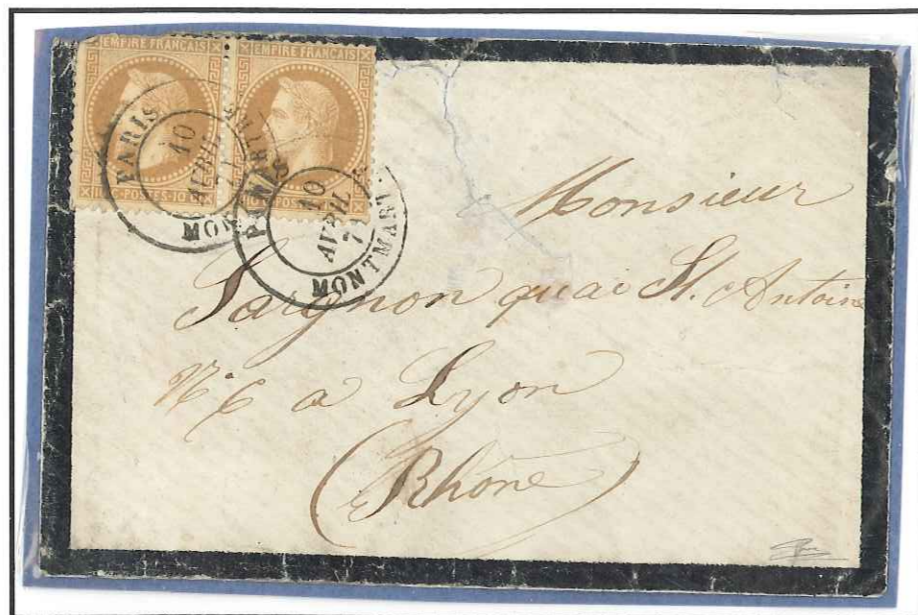 EMPIRE FRANÇAIS EMPIRE FRANÇAIS
10 C POSTES 10 C 10 C POSTES
PARIS 10 AVRIL 71 MONTMARTRE
PARIS 10 AVRIL 71 MONTMART
Monsieur
Saignon quai St. Antoine
N° 6 a Lyon
(Rhône)